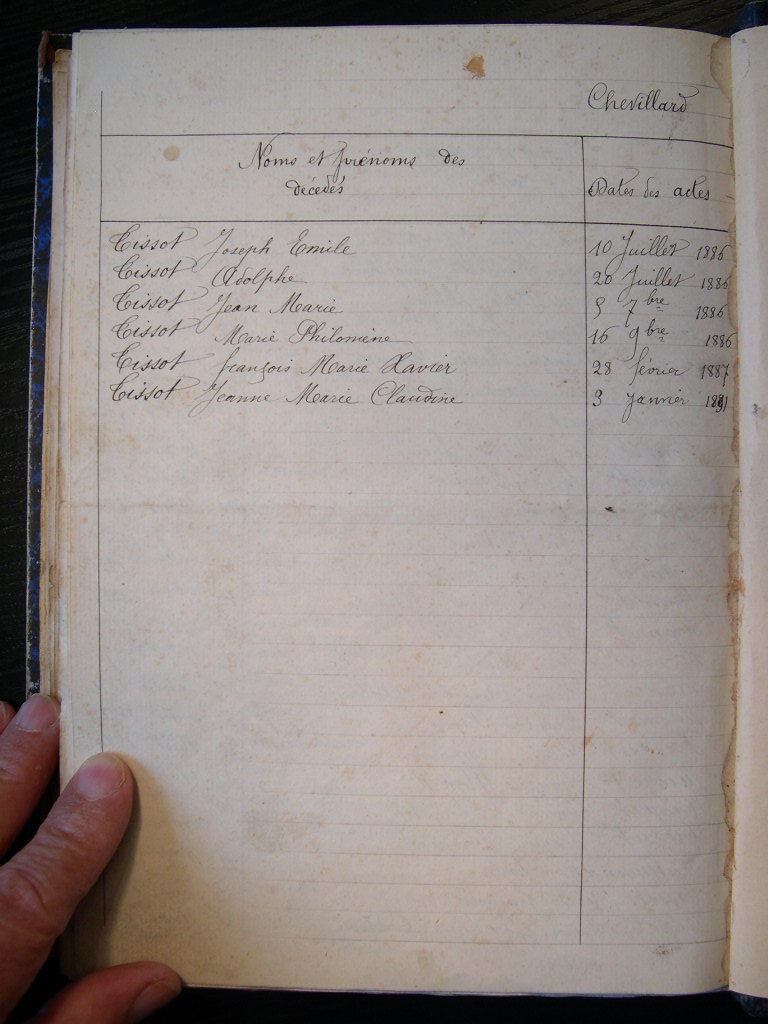 Chevillard
Noms et prénoms des
décédés
Dates des actes
Tissot Joseph Emile 10 Juillet 1886
Tissot Adolphe 20 Juillet 1886
Tissot Jean Marie 5 7bre 1886
Tissot Marie Philomène 16 9bre 1886
Tissot françois Marie Xavier 28 février 1887
Tissot Jeanne Marie Claudine 3 janvier 1891